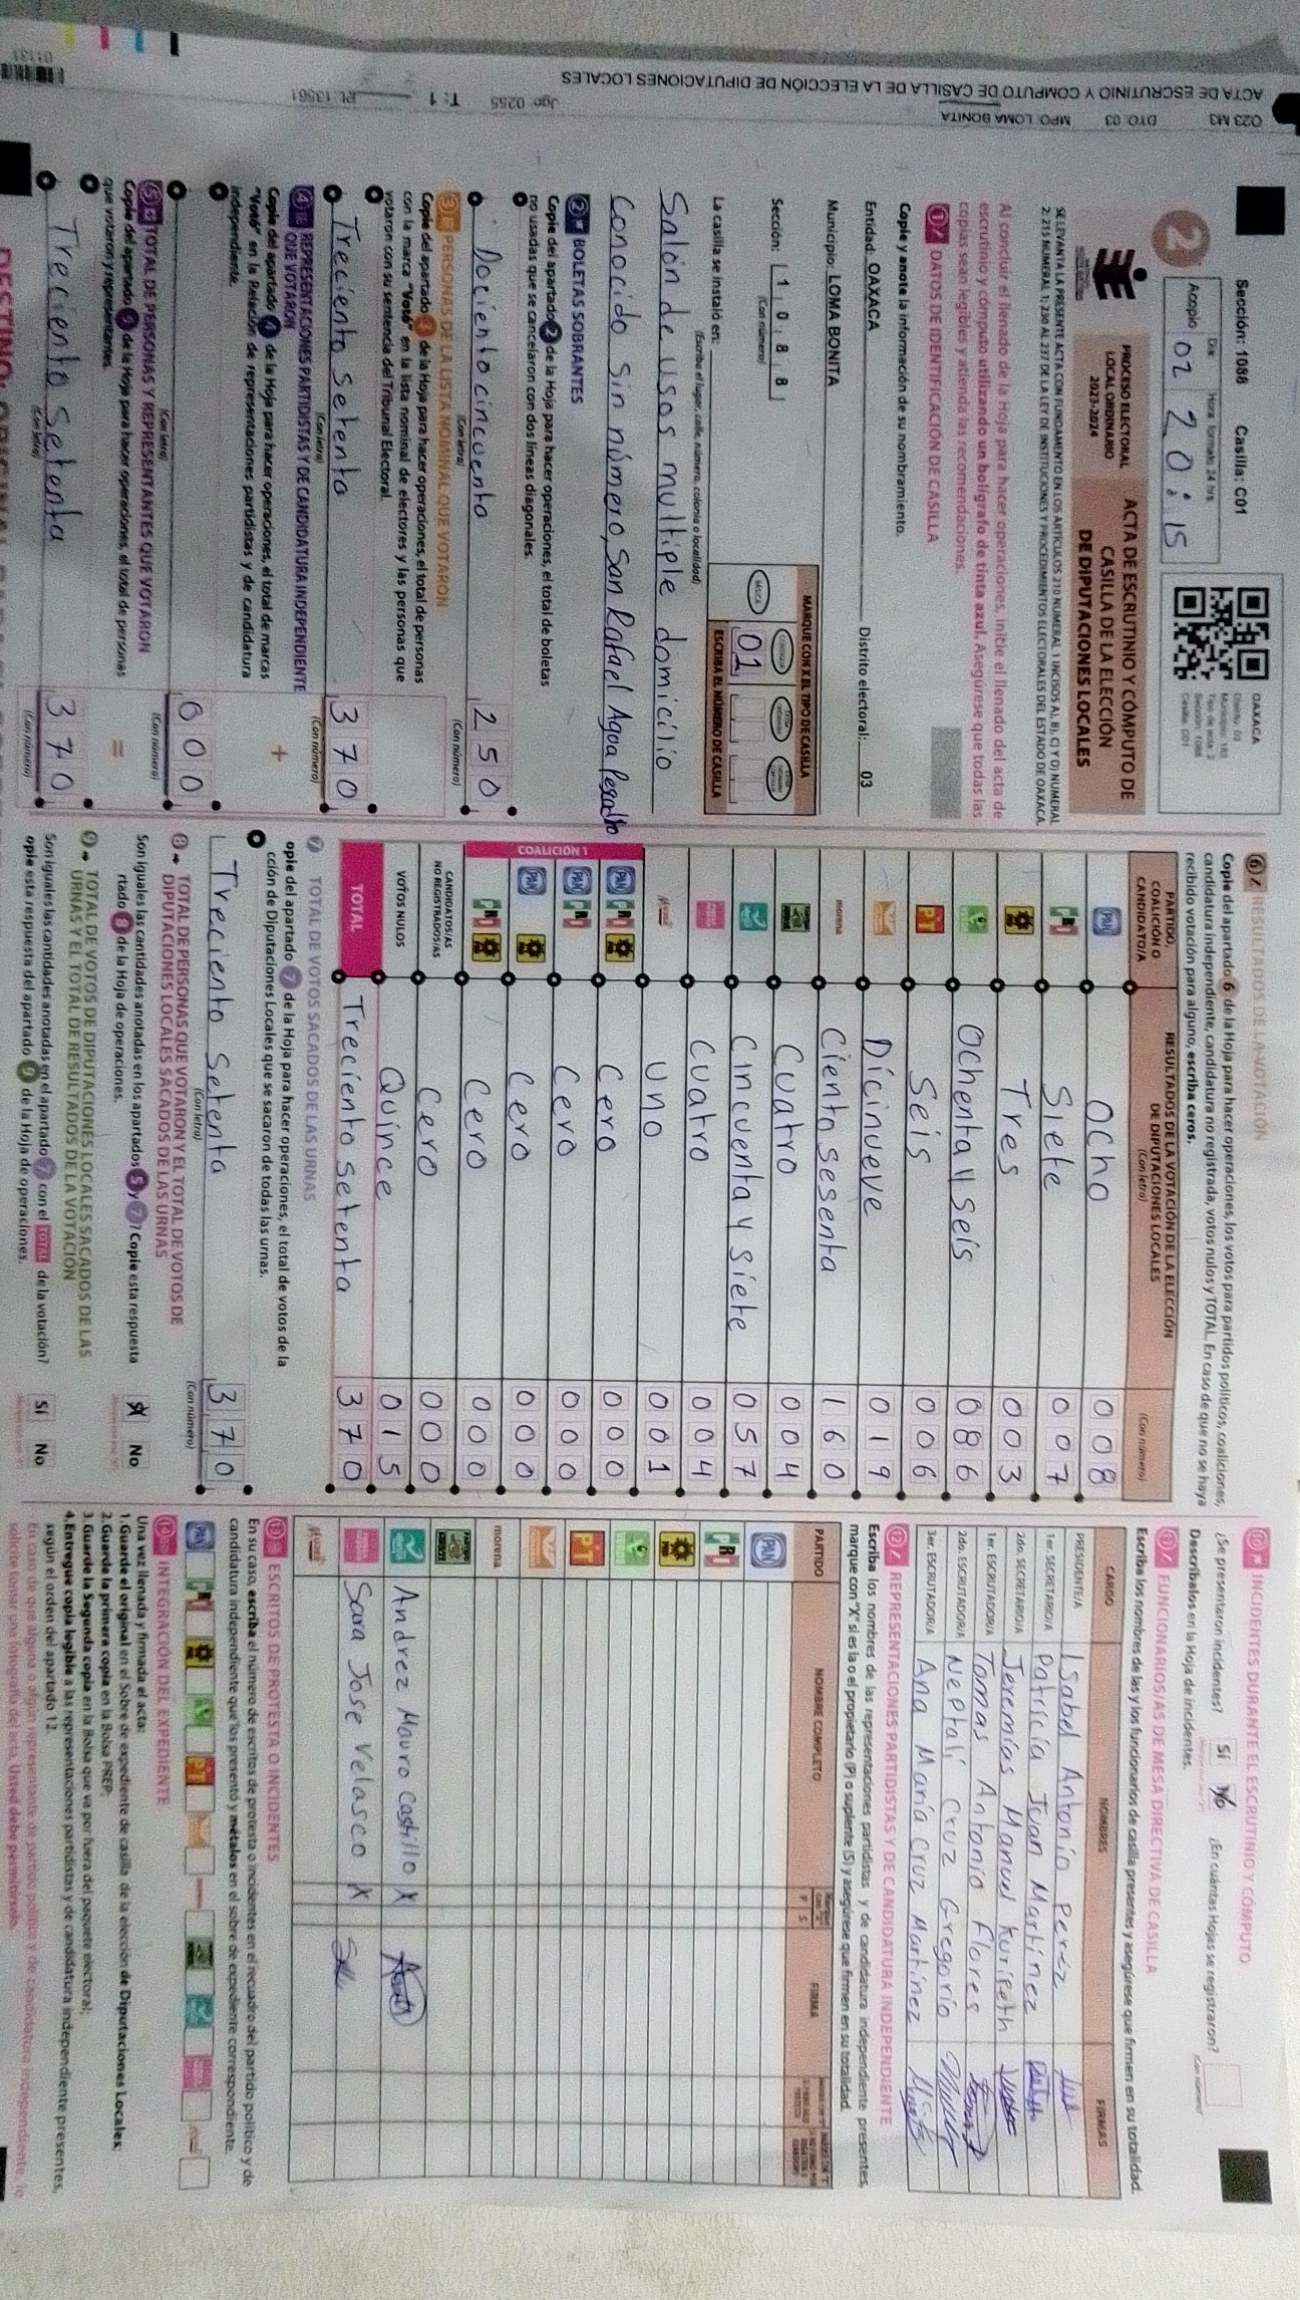 ACTA DE ESCRUTINIO Y CÓMPUTO DE CASILLA DE LA ELECCIÓN DE DIPUTACIONES LOCALES
023 M3 DTO. 03 MPO. LOMA BONITA Jgo. 0255 T: 1
Sección: 1088 Casilla: C01
Día Hora formato 24 hrs
Acopio 02 20:15
2
OAXACA
Distrito: 03
Sección: 1088
Casilla: C01
PROCESO ELECTORAL
LOCAL ORDINARIO
2023-2024
ACTA DE ESCRUTINIO Y CÓMPUTO DE
CASILLA DE LA ELECCIÓN
DE DIPUTACIONES LOCALES
SE LEVANTA LA PRESENTE ACTA CON FUNDAMENTO EN LOS ARTÍCULOS 210 NUMERAL 1 INCISOS A), B), C) Y D) NUMERAL
2; 215 NUMERAL 1; 230 AL 237 DE LA LEY DE INSTITUCIONES Y PROCEDIMIENTOS ELECTORALES DEL ESTADO DE OAXACA.
Al concluir el llenado de la Hoja para hacer operaciones, inicie el llenado del acta de
escrutinio y cómputo utilizando un bolígrafo de tinta azul. Asegúrese que todas las
copias sean legibles y atienda las recomendaciones.
1 DATOS DE IDENTIFICACIÓN DE CASILLA
Copie y anote la información de su nombramiento.
Entidad: OAXACA Distrito electoral: 03
Municipio: LOMA BONITA
MARQUE CON X EL TIPO DE CASILLA
BÁSICA
01
ESCRIBA EL NÚMERO DE CASILLA
Sección: 1 0 8 8
(Con número)
La casilla se instaló en:
(Escriba el lugar, calle, número, colonia o localidad)
Salón de usos multiple domicilio
Conocido sin número, San Rafael Agua
2 BOLETAS SOBRANTES
Copie del apartado 2 de la Hoja para hacer operaciones, el total de boletas
no usadas que se cancelaron con dos líneas diagonales.
Dociento cincuento 250
(Con letra) (Con número)
3 PERSONAS DE LA LISTA NOMINAL QUE VOTARON
Copie del apartado 3 de la Hoja para hacer operaciones, el total de personas
con la marca "Votó" en la lista nominal de electores y las personas que
votaron con su sentencia del Tribunal Electoral.
Treciento setenta 370
(Con letra) (Con número)
4 REPRESENTACIONES PARTIDISTAS Y DE CANDIDATURA INDEPENDIENTE
QUE VOTARON
Copie del apartado 4 de la Hoja para hacer operaciones, el total de marcas
"Votó" en la Relación de representaciones partidistas y de candidatura
independiente.
+
000
(Con letra) (Con número)
5 TOTAL DE PERSONAS Y REPRESENTANTES QUE VOTARON
Copie del apartado 5 de la Hoja para hacer operaciones, el total de personas
que votaron y representantes.
=
Treciento setenta 370
(Con letra) (Con número)
6 RESULTADOS DE LA VOTACIÓN
Copie del apartado 6 de la Hoja para hacer operaciones, los votos para partidos políticos, coaliciones,
candidatura independiente, candidatura no registrada, votos nulos y TOTAL. En caso de que no se haya
recibido votación para alguno, escriba ceros.
PARTIDO,
COALICIÓN O
CANDIDATO/A
RESULTADOS DE LA VOTACIÓN DE LA ELECCIÓN
DE DIPUTACIONES LOCALES
(Con letra) (Con número)
PAN Ocho 008
PRI Siete 007
PRD Tres 003
VERDE Ochenta y seis 086
PT Seis 006
Dicinueve 019
morena Ciento sesenta 160
Cuatro 004
Cincuenta y siete 057
Cuatro 004
Uno 001
COALICIÓN 1
PAN PRI PRD Cero 000
PAN PRI Cero 000
PAN PRD Cero 000
PRI PRD Cero 000
CANDIDATOS/AS
NO REGISTRADOS/AS Cero 000
VOTOS NULOS Quince 015
TOTAL Treciento setenta 370
7 TOTAL DE VOTOS SACADOS DE LAS URNAS
opie del apartado 7 de la Hoja para hacer operaciones, el total de votos de la
cción de Diputaciones Locales que se sacaron de todas las urnas.
Treciento setenta 370
(Con letra) (Con número)
8 TOTAL DE PERSONAS QUE VOTARON Y EL TOTAL DE VOTOS DE
DIPUTACIONES LOCALES SACADOS DE LAS URNAS
Son iguales las cantidades anotadas en los apartados 5 y 7? Copie esta respuesta
rtado 8 de la Hoja de operaciones.
Sí No
9 TOTAL DE VOTOS DE DIPUTACIONES LOCALES SACADOS DE LAS
URNAS Y EL TOTAL DE RESULTADOS DE LA VOTACIÓN
Son iguales las cantidades anotadas en el apartado 7 con el TOTAL de la votación?
opie esta respuesta del apartado 9 de la Hoja de operaciones.
Sí No
10 INCIDENTES DURANTE EL ESCRUTINIO Y CÓMPUTO
¿Se presentaron incidentes? Sí No ¿En cuántas Hojas se registraron?
Descríbalos en la Hoja de incidentes.
(Con número)
11 FUNCIONARIOS/AS DE MESA DIRECTIVA DE CASILLA
Escriba los nombres de las y los funcionarios de casilla presentes y asegúrese que firmen en su totalidad.
CARGO NOMBRES FIRMAS
PRESIDENTE/A Isabel Antonio Perez
1er. SECRETARIO/A Patricia Juan Martinez
2do. SECRETARIO/A Jeremías Manuel
1er. ESCRUTADOR/A Tomas Antonio Flores
2do. ESCRUTADOR/A Neptalí Cruz Gregorio
3er. ESCRUTADOR/A Ana María Cruz Martinez
12 REPRESENTACIONES PARTIDISTAS Y DE CANDIDATURA INDEPENDIENTE
Escriba los nombres de las representaciones partidistas y de candidatura independiente presentes,
marque con "X" si es la o el propietario (P) o suplente (S) y asegúrese que firmen en su totalidad.
PARTIDO NOMBRE COMPLETO P S FIRMA
PAN
PRI
PRD
VERDE
PT
morena
Andrez Mauro Castillo X
Sara Jose Velasco X
13 ESCRITOS DE PROTESTA O INCIDENTES
En su caso, escriba el número de escritos de protesta o incidentes en el recuadro del partido político y de
candidatura independiente que los presentó y métalos en el sobre de expediente correspondiente.
PAN PRI PRD PT
14 INTEGRACIÓN DEL EXPEDIENTE
Una vez llenada y firmada el acta:
1. Guarde el original en el Sobre de expediente de casilla de la elección de Diputaciones Locales;
2. Guarde la primera copia en la Bolsa PREP;
3. Guarde la Segunda copia en la Bolsa que va por fuera del paquete electoral;
4. Entregue copia legible a las representaciones partidistas y de candidatura independiente presentes,
según el orden del apartado 12.
En caso de que alguna o algún representante de partido político y de candidatura independiente, le
solicite tomar una fotografía del acta, Usted debe permitírselo.